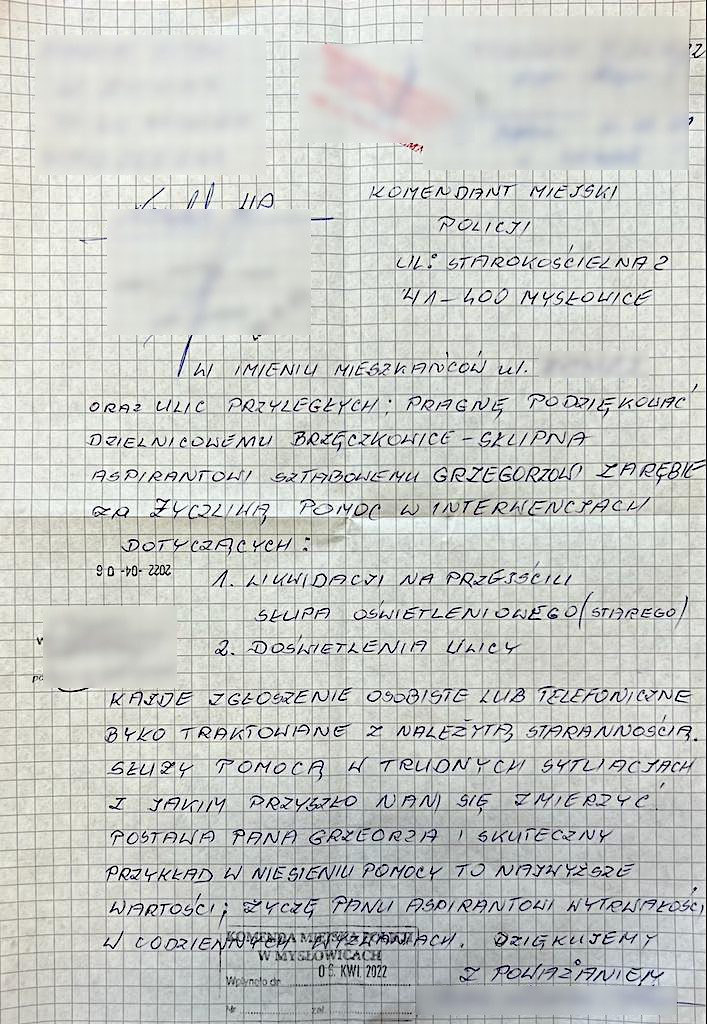 KOMENDANT MIEJSKI
POLICJI
UL: STAROKOŚCIELNA 2
41-400 MYSŁOWICE
W IMIENIU MIESZKAŃCÓW ul.
ORAZ ULIC PRZYLEGŁYCH; PRAGNĘ PODZIĘKOWAĆ
DZIELNICOWEMU BRZĘCZKOWICE-SŁUPNA
ASPIRANTOWI SZTABOWEMU GRZEGORZOWI ZARĘBIE
ZA ŻYCZLIWĄ POMOC W INTERWENCJACH
DOTYCZĄCYCH:
2022 -04- 06
1. LIKWIDACJI NA PRZEJŚCIU
SŁUPA OŚWIETLENIOWEGO (STAREGO)
2. DOŚWIETLENIA ULICY
KAŻDE ZGŁOSZENIE OSOBISTE LUB TELEFONICZNE
BYŁO TRAKTOWANE Z NALEŻYTĄ STARANNOŚCIĄ.
SŁUŻY POMOCĄ W TRUDNYCH SYTUACJACH
Z JAKIM PRZYSZŁO NAM SIĘ ZMIERZYĆ.
POSTAWA PANA GRZEORZA I SKUTECZNY
PRZYKŁAD W NIESIENIU POMOCY TO NAJWYŻSZE
WARTOŚCI; ŻYCZĘ PANU ASPIRANTOWI WYTRWAŁOŚCI
W CODZIENNYCH WYZWANIACH. DZIĘKUJEMY
Z POWAŻANIEM
KOMENDA MIEJSKA POLICJI
W MYSŁOWICACH
Wpłynęło dn. 06. KWI. 2022
Nr zał.